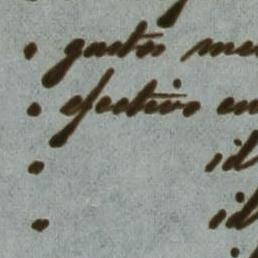 . gastos me
. efectivo en
. id
. id